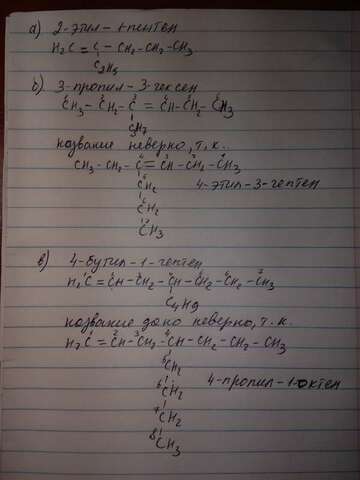 а) 2-этил-1-пентен
H₂C = C - CH₂ - CH₂ - CH₃
C₂H₅
б) 3-пропил-3-гексен
¹CH₃ - ²CH₂ - ³C = ⁴CH - ⁵CH₂ - ⁶CH₃
C₃H₇
название неверно, т.к.
CH₃ - CH₂ - ⁴C = ³CH - ²CH₂ - ¹CH₃
⁵CH₂
4-этил-3-гептен
⁶CH₂
⁷CH₃
в) 4-бутил-1-гептен
H₂¹C = ²CH - ³CH₂ - ⁴CH - ⁵CH₂ - ⁶CH₂ - ⁷CH₃
C₄H₉
название дано неверно, т.к.
H₂¹C = ²CH - ³CH₂ - ⁴CH - CH₂ - CH₂ - CH₃
⁵CH₂
4-пропил-1-октен
⁶CH₂
⁷CH₂
⁸CH₃